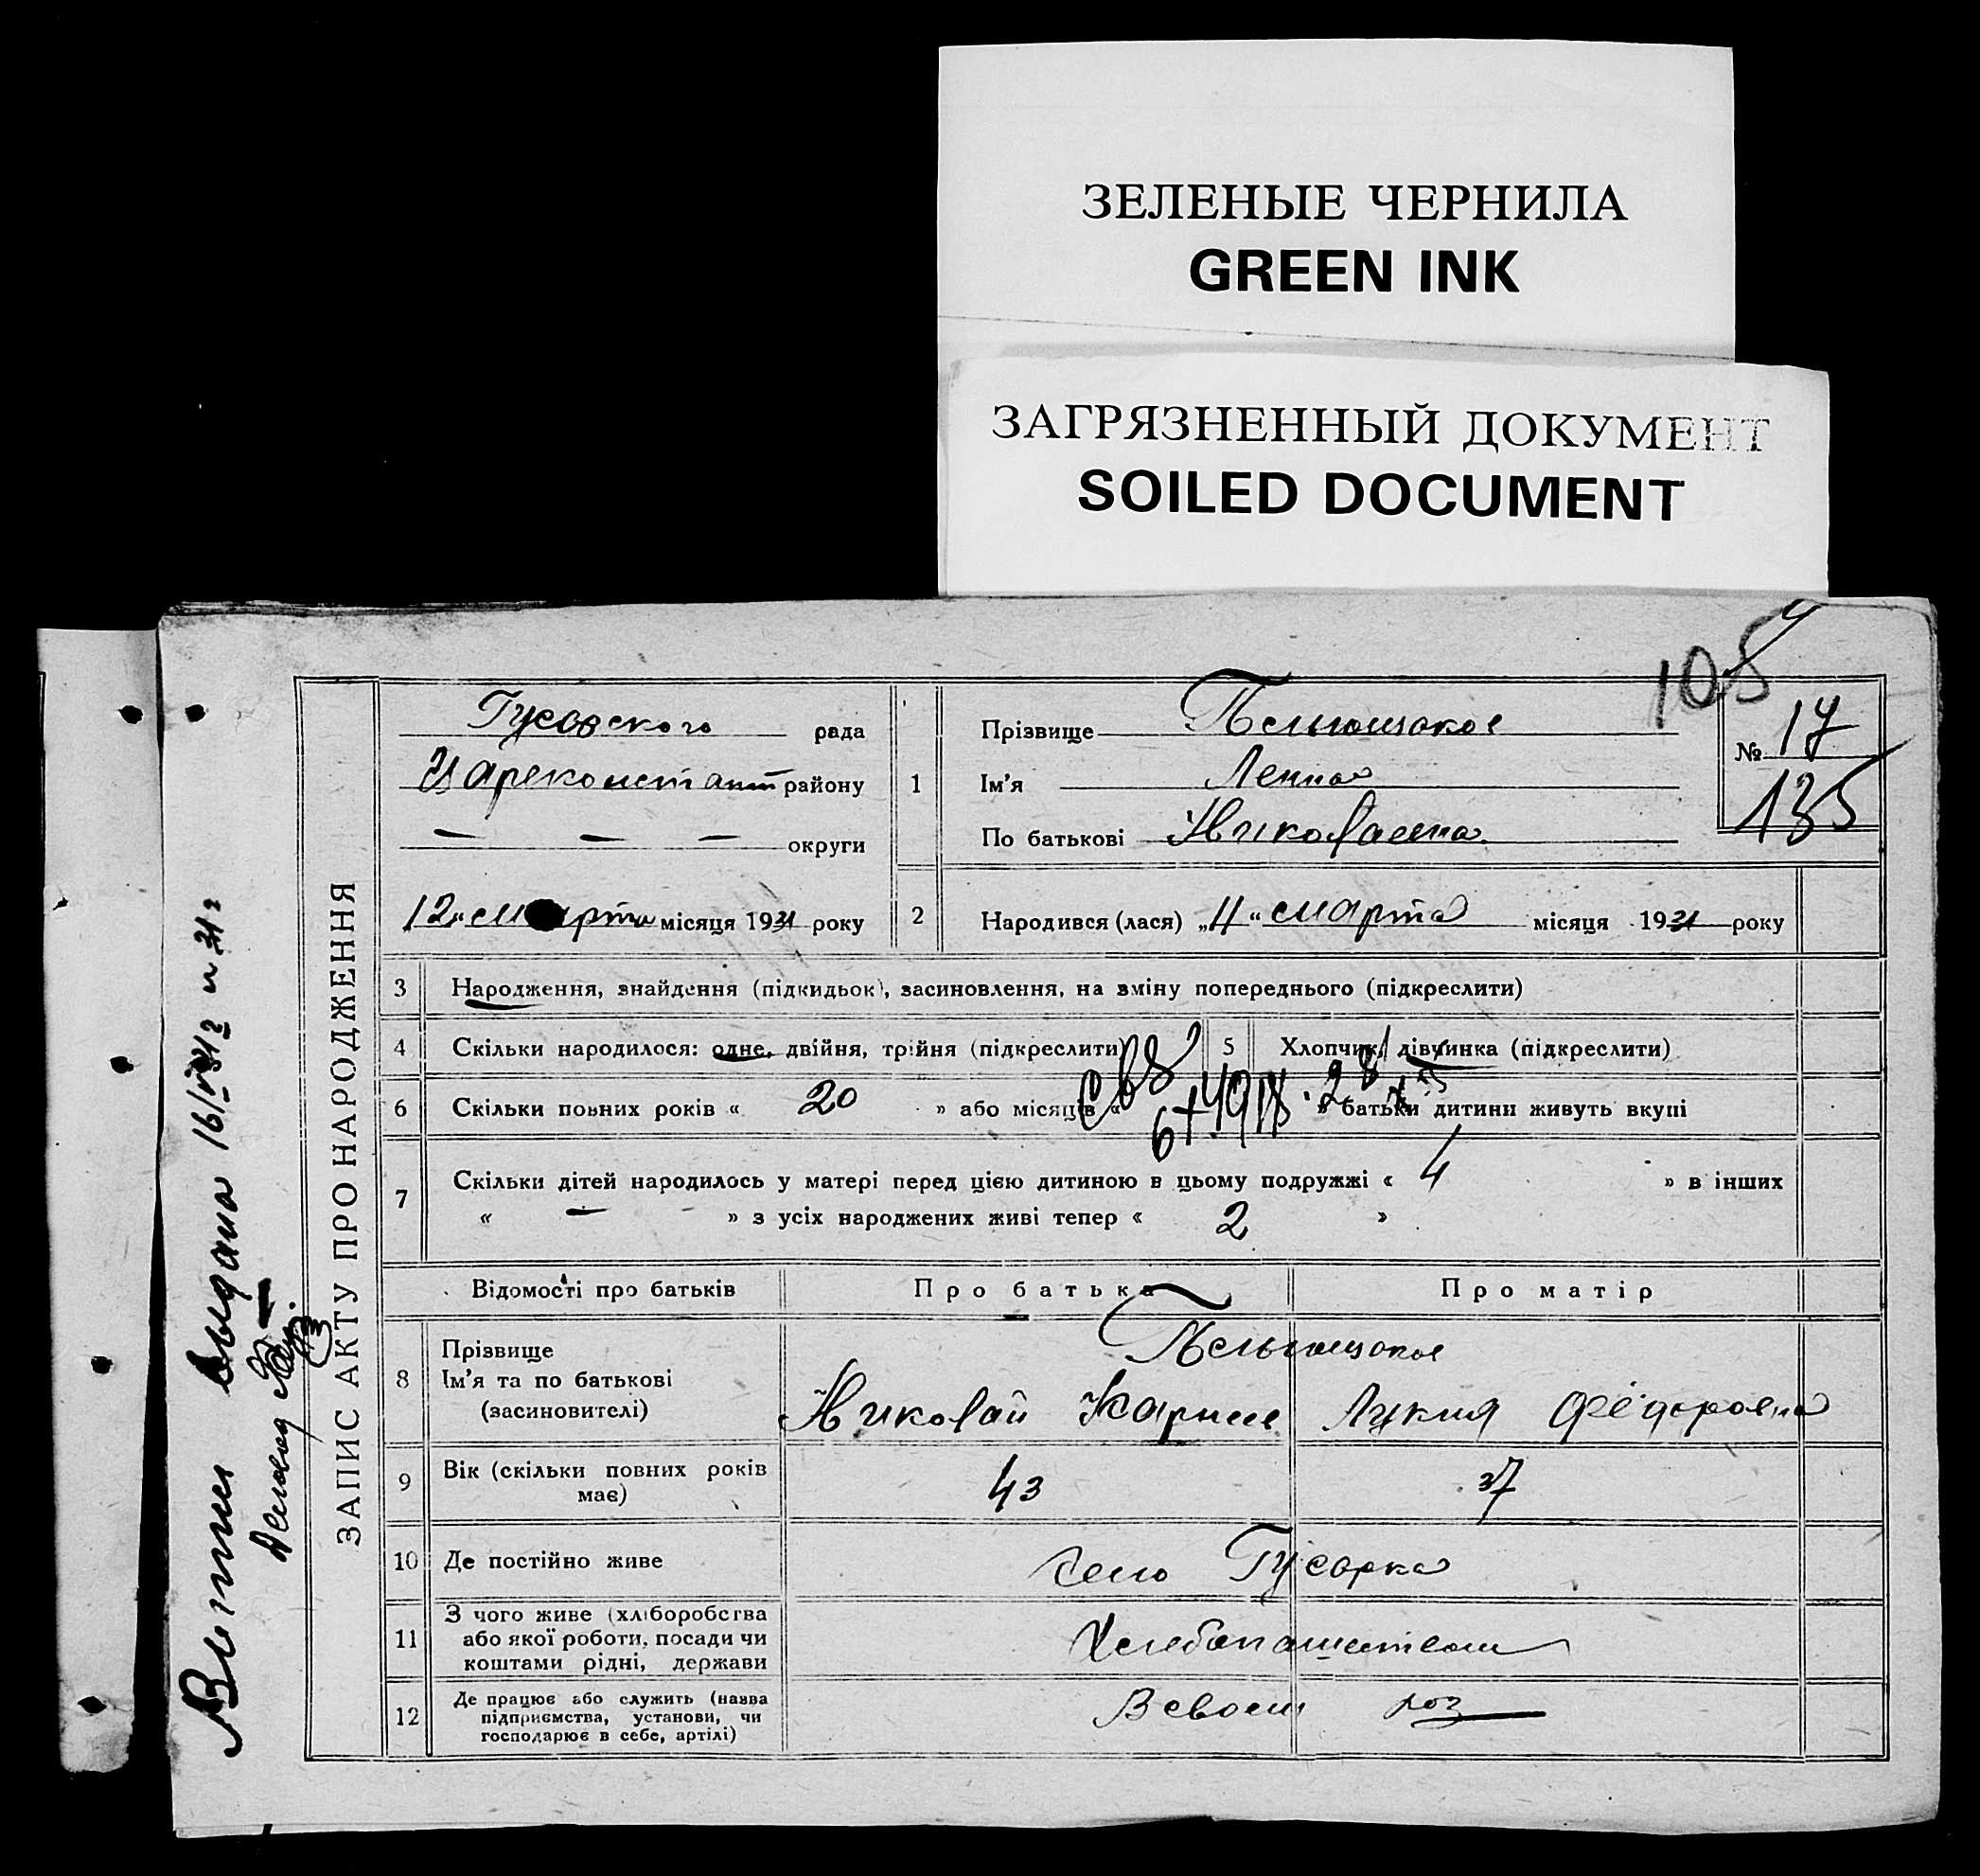 ЗЕЛЕНЫЕ ЧЕРНИЛА
GREEN INK
ЗАГРЯЗНЕННЫЙ ДОКУМЕНТ
SOILED DOCUMENT
108
ЗАПИС АКТУ ПРО НАРОДЖЕННЯ
рада
району
— — — округи
12 „ марта місяця 1931 року
1
Прізвище
Ім'я
По батькові Николаевна
№ 17
135
2 Народився (лася) „11“ марта місяця 1931 року
3 Народження, знайдення (підкидьок), засиновлення, на зміну попереднього (підкреслити)
4 Скільки народилося: одне, двійня, трійня (підкреслити)
5 Хлопчик, дівчинка (підкреслити)
6 Скільки повних років « 20 » або місяців « » батьки дитини живуть вкупі
7 Скільки дітей народилось у матері перед цією дитиною в цьому подружжі « 4 » в інших
« — » з усіх народжених живі тепер « 2 »
Відомості про батьків Про батька Про матір
8 Прізвище
Ім'я та по батькові
(засиновителі)
Николай Лукия Фёдоровна
9 Вік (скільки повних років має) 43 37
10 Де постійно живе село Гусарка
11 З чого живе (хліборобства
або якої роботи, посади чи
коштами рідні, держави
12 Де працює або служить (назва
підприємства, установи, чи
господарює в себе, артілі)
В своем хоз